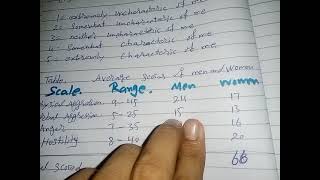 1= extremely uncharacteric of me.
2= Somewhat uncharacteric of me
3= neither uncharacteric of me
4= Somewhat Characteric of me.
5= extremely Characteric of me.
Table. Average scores of men and women
Scale. Range. Men Women
aggression 9-45 24 17
aggression 5-25 15 13
Anger 7-35 16
Hostility 8-40 20
scored 66